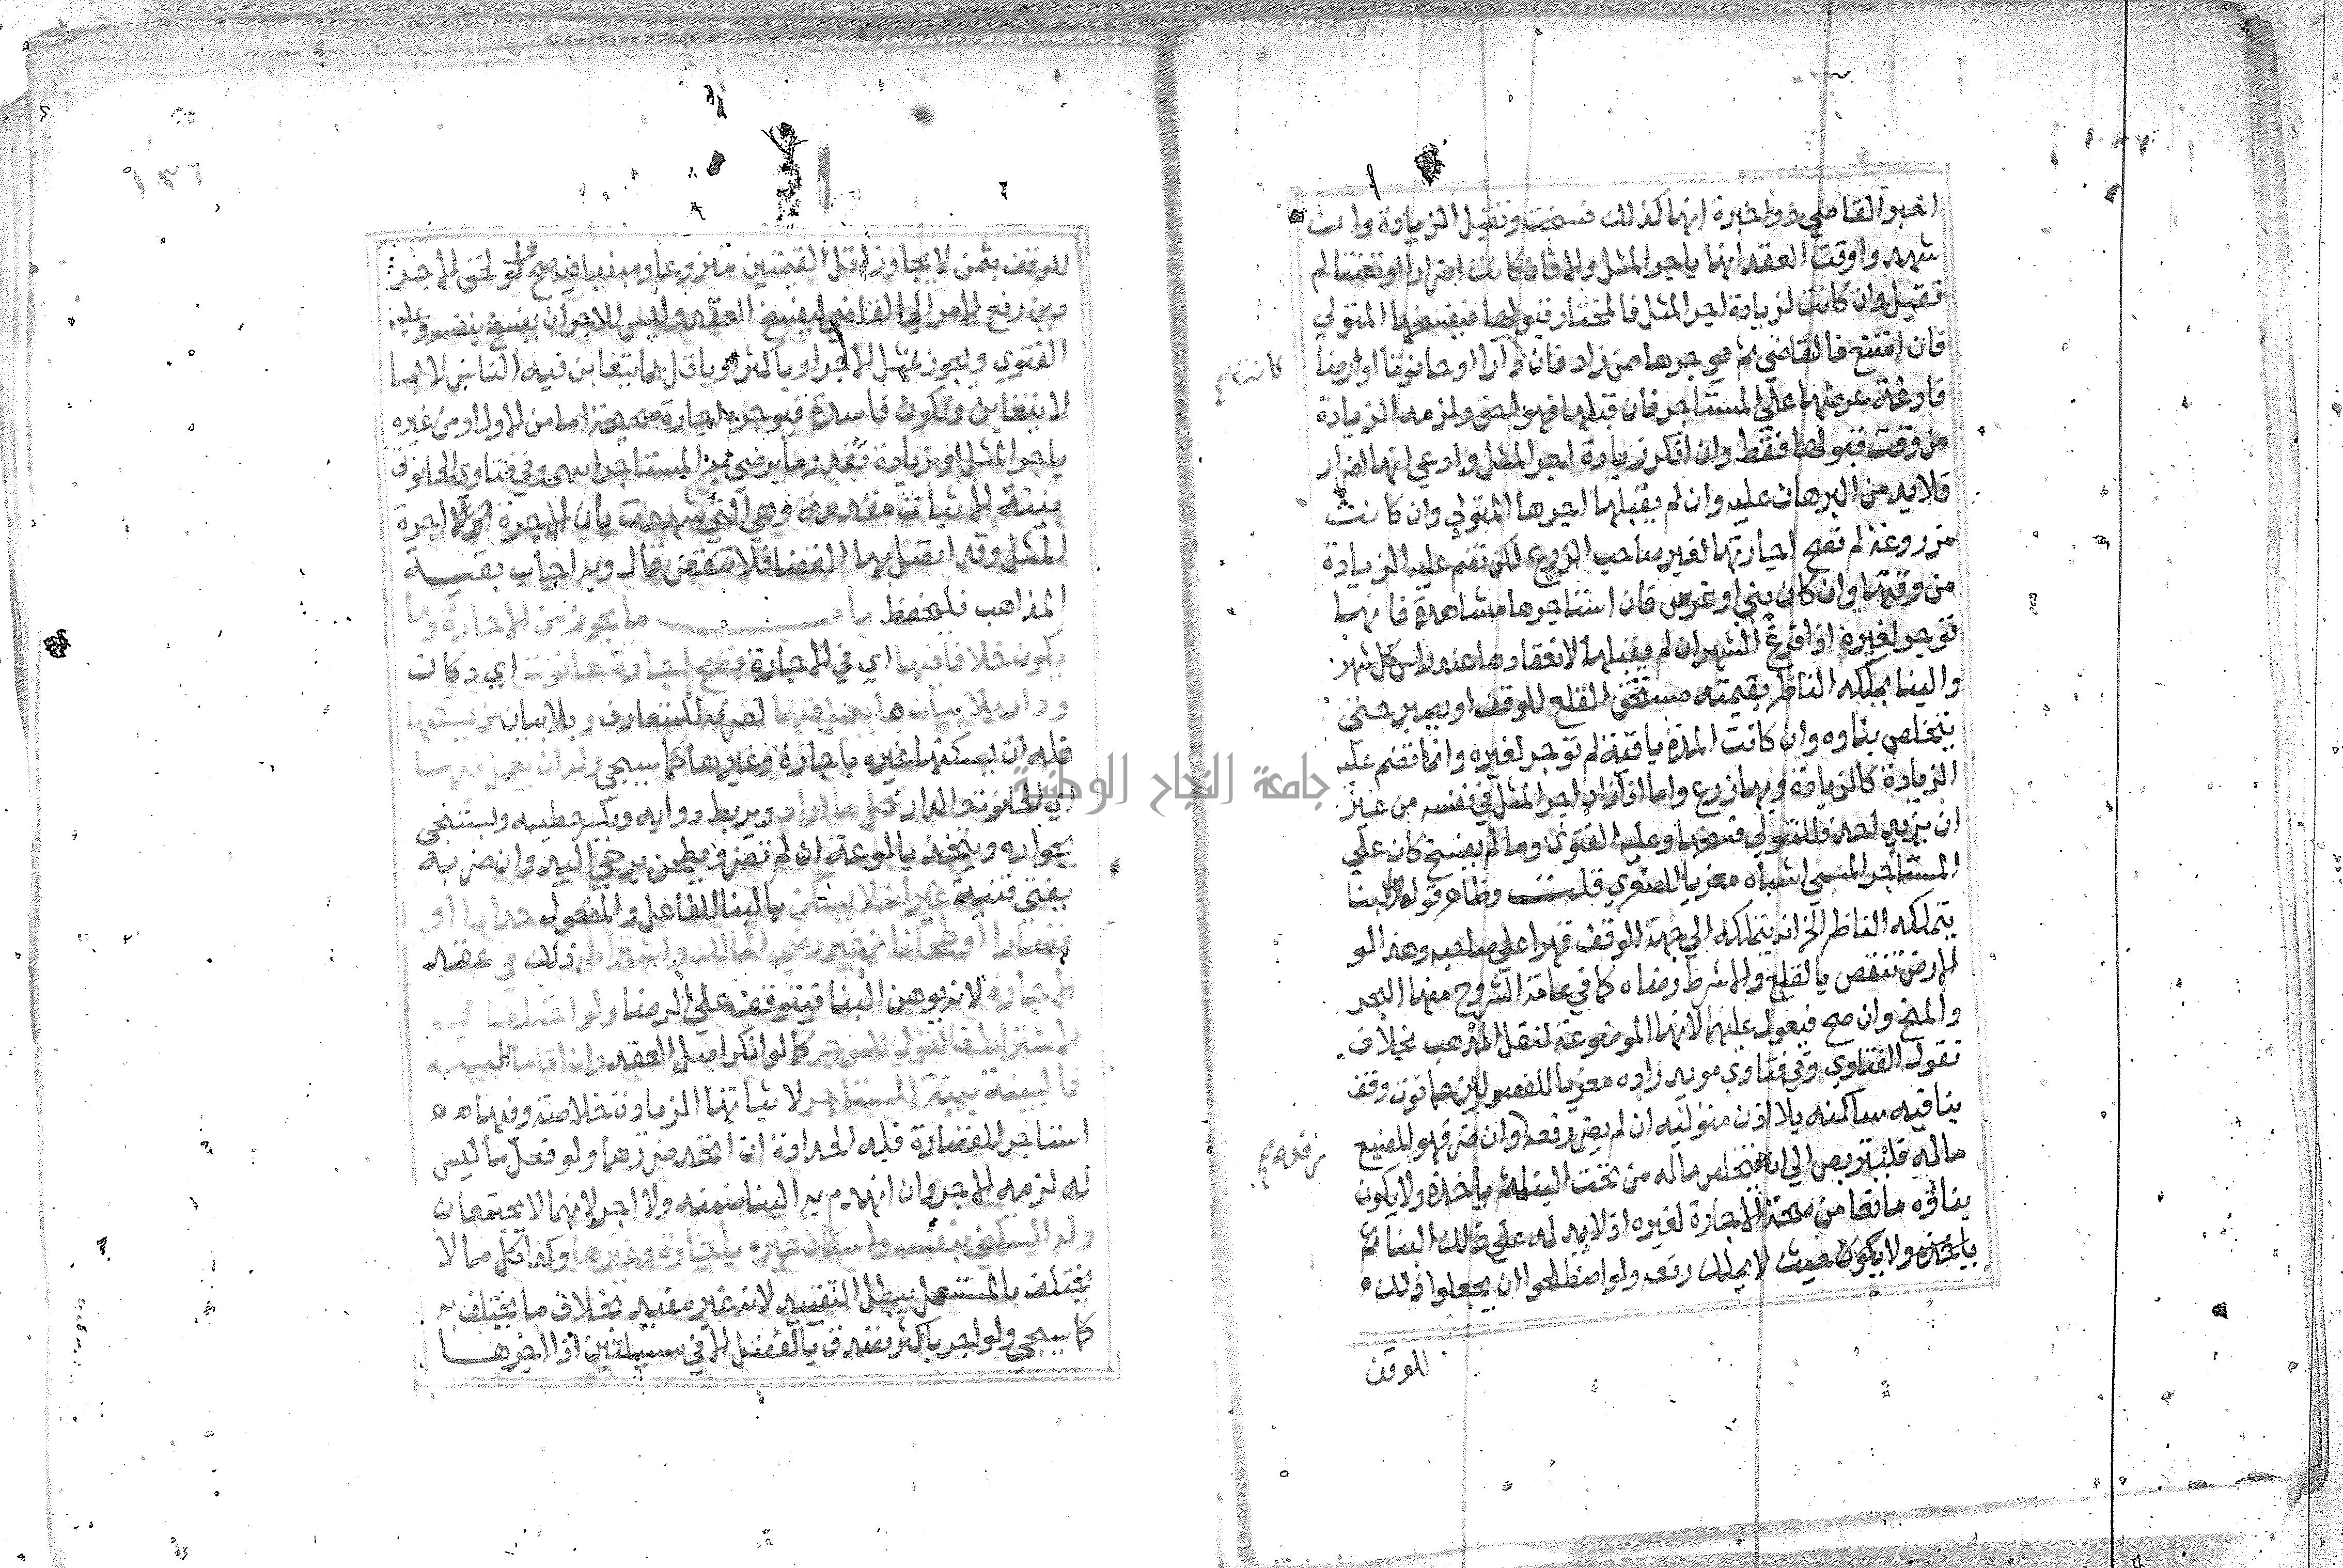 اخبر القاضي ذو اخبرة انها كذلك فسخت وتقبل الزيادة وان
شهدوا وقت العقد انها باجر المثل والا فان كانت اضرارا وتعنتا لم
تقبل وان كانت لزيادة اجر المثل فالمختار قبولها فيفسخها المتولي
فان امتنع فالقاضي ثم يوجرها ممن زاد فان دارا او حانوتا او ارضا
كانت صح
فارغة عرضها علي المستاجر فان قبلها فهو احق ولزمه الزيادة
من وقت قبولها فقط وان انكر زيادة اجر المثل وادعي انها اضرار
فلابد من البرهان عليه وان لم يقبلها اجرها المتولي وان كانت
مزروعة لم تصح اجارتها لغير صاحب الزرع لكن تضم عليه الزيادة
من وقتها وان كان بني او غرس فان استاجرها مشاهرة فانها
توجر لغيره اذا فرغ الشهر ان لم يقبلها لانعقادها عند راس كل شهر
والبنا يملكه الناظر بقيمته مستحق القلع للوقف او يصبر حتي
يتخلص بناوه وان كانت المدة باقية لم توجر لغيره وانما تضم عليه
الزيادة كالزيادة وبها زرع واما اذا زاد اجر المثل في نفسه من غير
ان يزيد احد فللمتولي فسخها وعليه الفتوي وما لم يفسخ كان علي
المستاجر المسمي اشباه معزيا للصغري قلت وظاهر قوله والبنا
يتملكه الناظر الخ انه يتملكه الي جهة الوقف قهرا علي صاحبه وهذا لو
الارض تنقص بالقلع والا شرط رضاه كما في عامة الشروح منها البحر
والمنح وان صح فيعول عليها لانها الموضوعة لنقل المذهب بخلاف
نقول الفتاوي وفي فتاوي مويد زاده معزيا للفصولين حانوت وقف
بنا فيه ساكنه بلا اذن متوليه ان لم يضر رفعه وان ضر فهو المضيع
رفعه صح
ماله فليتربص الي ان يتخلص ماله من تحت البنا ثم ياخذه ولا يكون
بناؤه مانعا من صحة الاجارة لغيره اذ لا يد له علي ذلك البنا ثم
ياخذه ولا يكون حيث لا يملك رفعه ولو اصطلحوا ان يجعلوا ذلك
للوقف
للوقف بثمن لا يجاوز اقل القيمتين منزوعا ومبنيا فيه صح ولو لحق الاجر
دين رفع الامر الي القاضي ليفسخ العقد وليس للاجر ان يفسخ بنفسه وعليه
الفتوي ويجوز بمثل الاجر او باكثر او باقل بما يتغابن فيه الناس لا بما
لا يتغابن وتكون فاسدة فيوجره اجارة صحيحة اما من الاول او من غيره
باجر المثل او بزيادة بقدر ما يرضي به المستاجر اسهو وفي فتاوي الحانوتي
بينة الاثبات مقدمة وهي التي شهدت بان الاجرة اولا اجرة
المثل وقد اتصل بها القضا فلا تنقض قال وبه اجاب بقية
المذاهب فليحفظ باب ما يجوز من الاجارة وما
يكون خلافا فيها اي في الاجارة تصح اجارة حانوت اي دكان
ودار بلا بيان ما يعمل فيها لصرفه للمتعارف وبلا بيان من يسكنها
فله ان يسكنها غيره باجارة وغيرها كما سيجي وله ان يعمل فيها
اي الحانوت والدار كل ما اراد ويربط دوابه ويكسر حطبه ويستنجي
بجداره ويتخذ بالوعة ان لم تضر ويطحن برحي اليد وان ضر به
يفتي قنية غير انه لا يسكن بالبنا للفاعل والمفعول حدادا او
قصارا او طحانا من غير رضي المالك واشتراطه ذلك في عقد
الاجارة لانه يوهن البنا فيتوقف علي الرضا ولو اختلفا في
الاشتراط فالقول للموجر كما لو انكر اصل العقد وان اقاما البينة
فالبينة بينة المستاجر لاثباتها الزيادة خلاصة وفيها
استاجر للقصارة فله الحدادة ان اتحد ضررهما ولو فعل ما ليس
له لزمه الاجر وان انهدم به البنا ضمنه ولا اجر لانهما لا يجتمعان
وله السكني بنفسه واسكان غيره باجارة وغيرها وكذا كل ما لا
يختلف بالمستعمل يبطل التقييد لانه غير مفيد بخلاف ما يختلف به
كما سيجي ولو اجر باكثر تصدق بالفضل الا في مسئلتين اذا اجرها
جامعة النجاح الوطنية